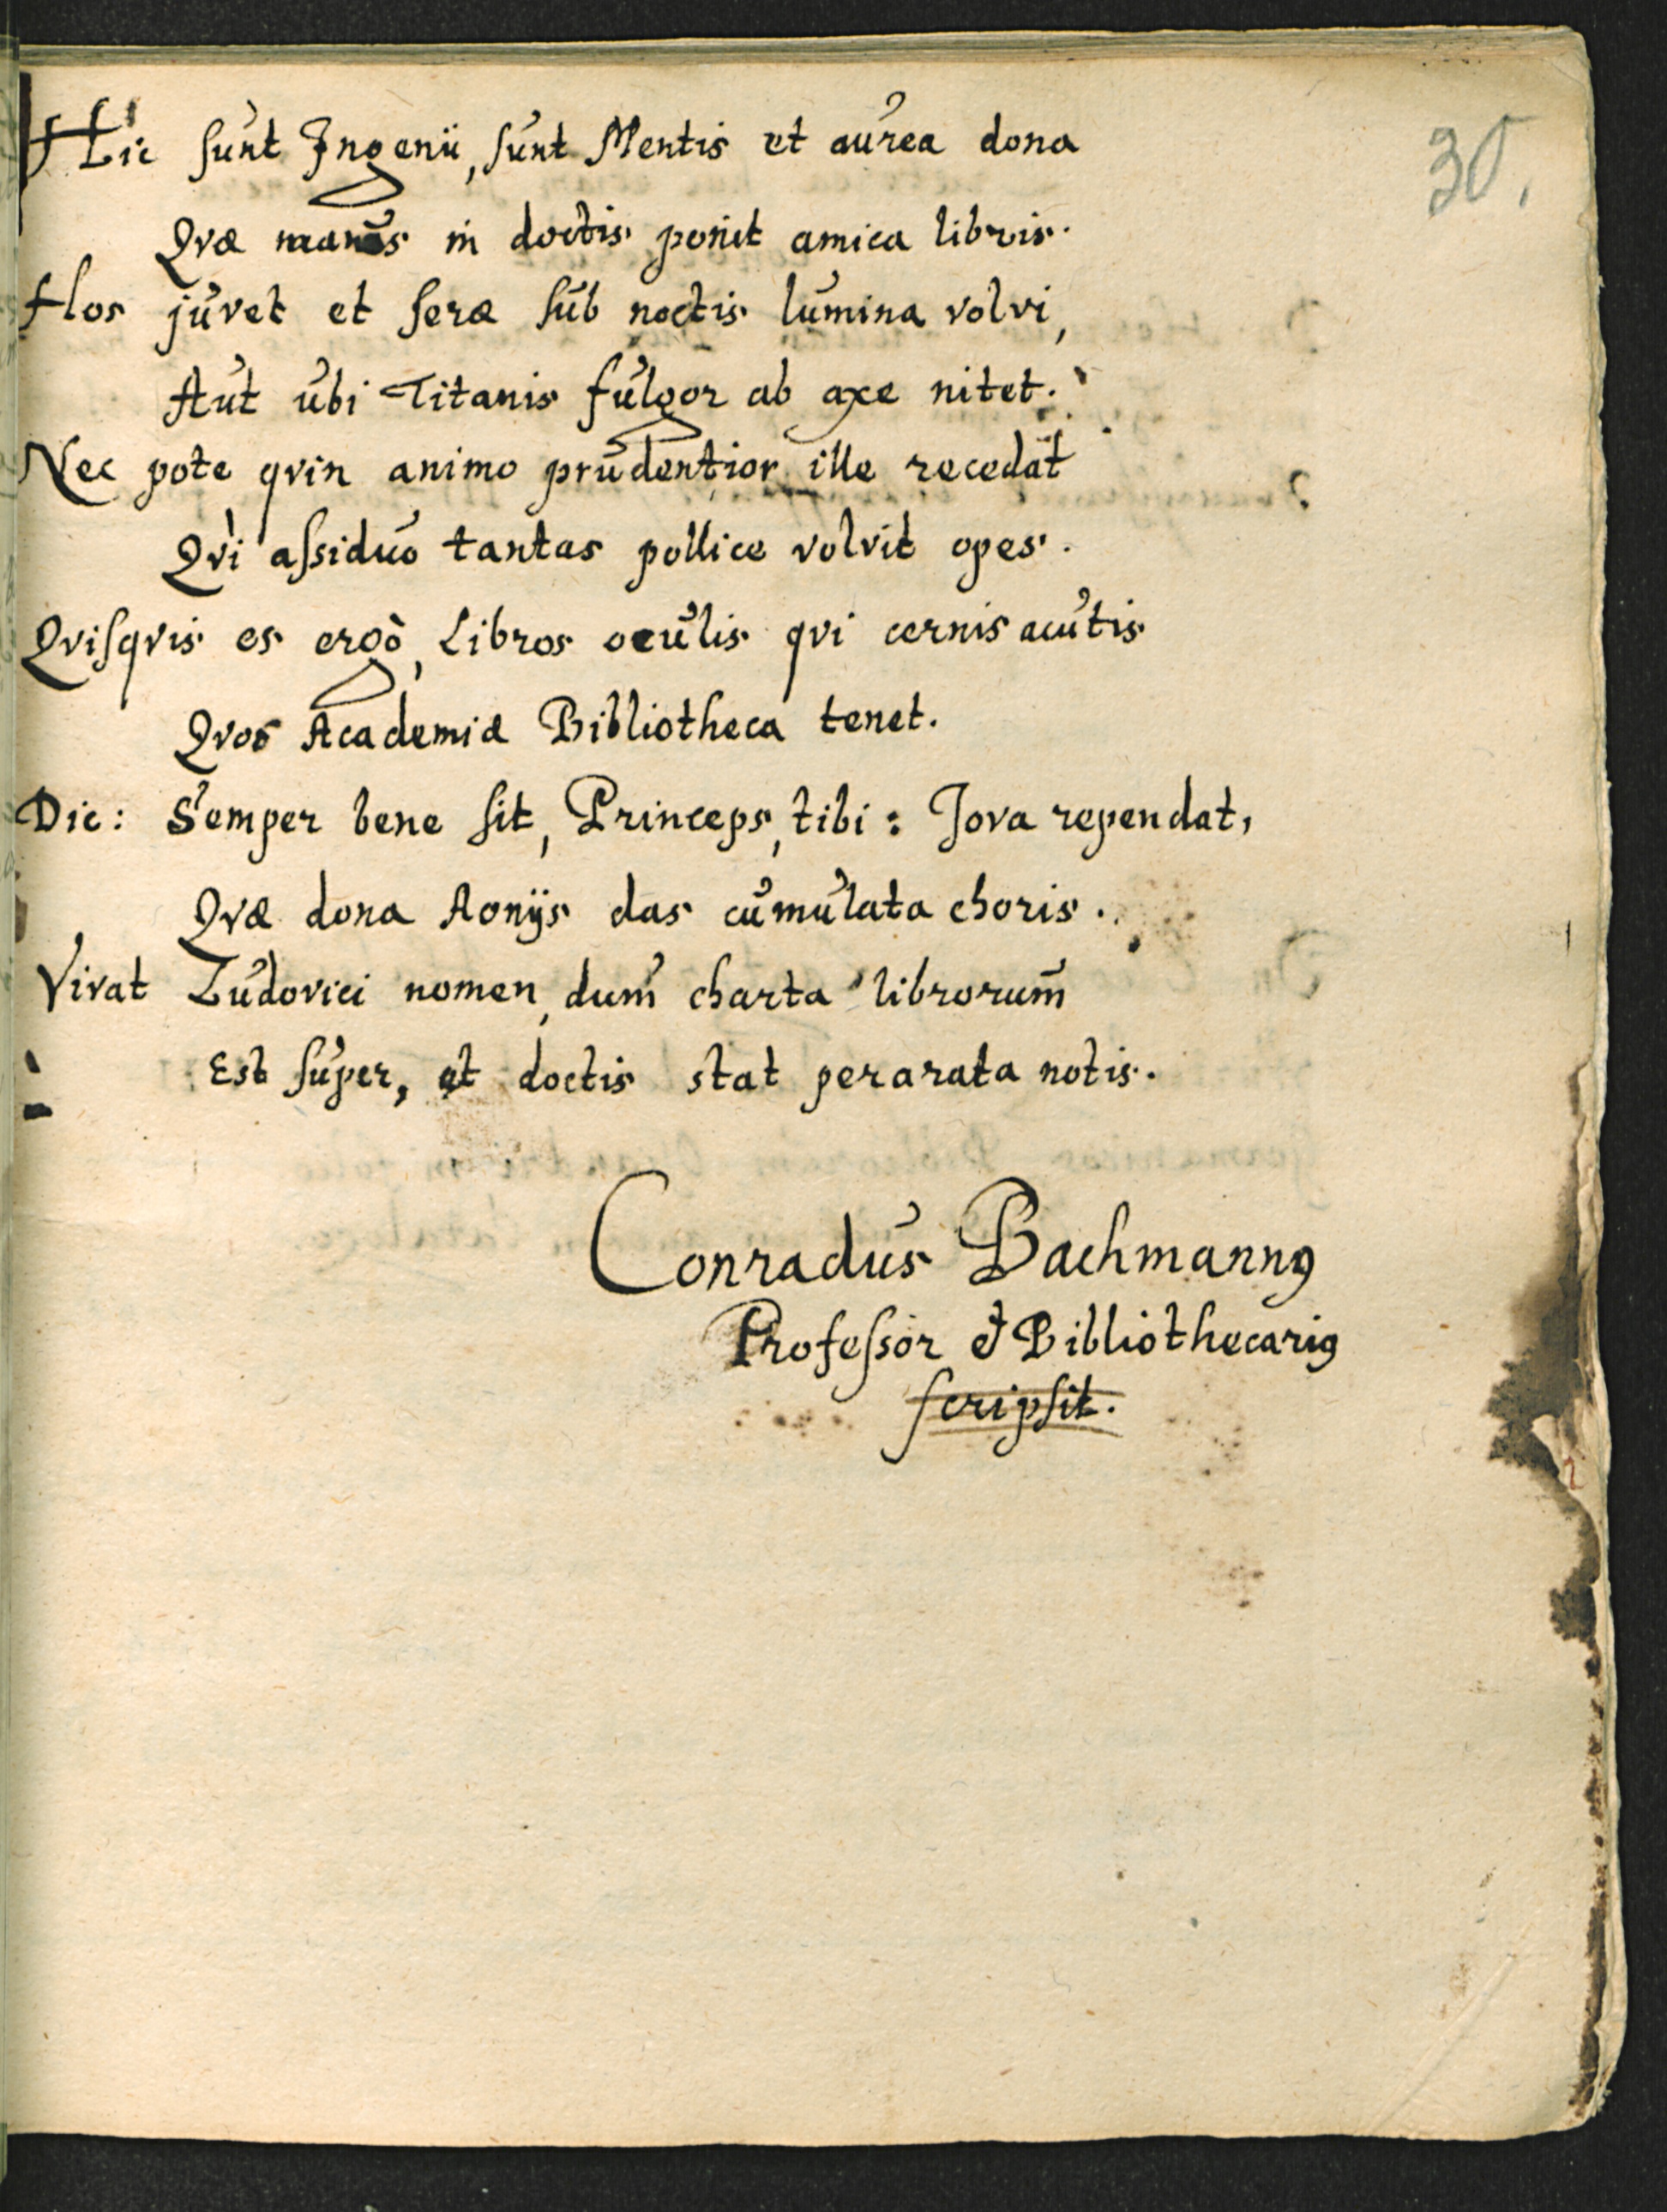 30.
Hic sunt Ingenii, sunt Mentis et aurea dona
Qvæ manus in doctis ponit amica libris.
Hos juvet et seræ sub noctis lumina volvi,
Aut ubi Titanis fulgor ab axe nitet.
Nec pote qvin animo prudentior ille recedat
Qvi assiduo tantas pollice volvit opes.
Qvisqvis es ergò, Libros oculis qvi cernis acutis
Qvos Academiæ Bibliotheca tenet.
Dic: Semper bene sit, Princeps, tibi: Jova rependat,
Qvæ dona Aonijs das cumulata choris.
Vivat Ludovici nomen, dum charta librorum
Est super, et doctis stat perarata notis.
Conradus Bachmannꝯ
Professor et Bibliothecariꝯ
scripsit.